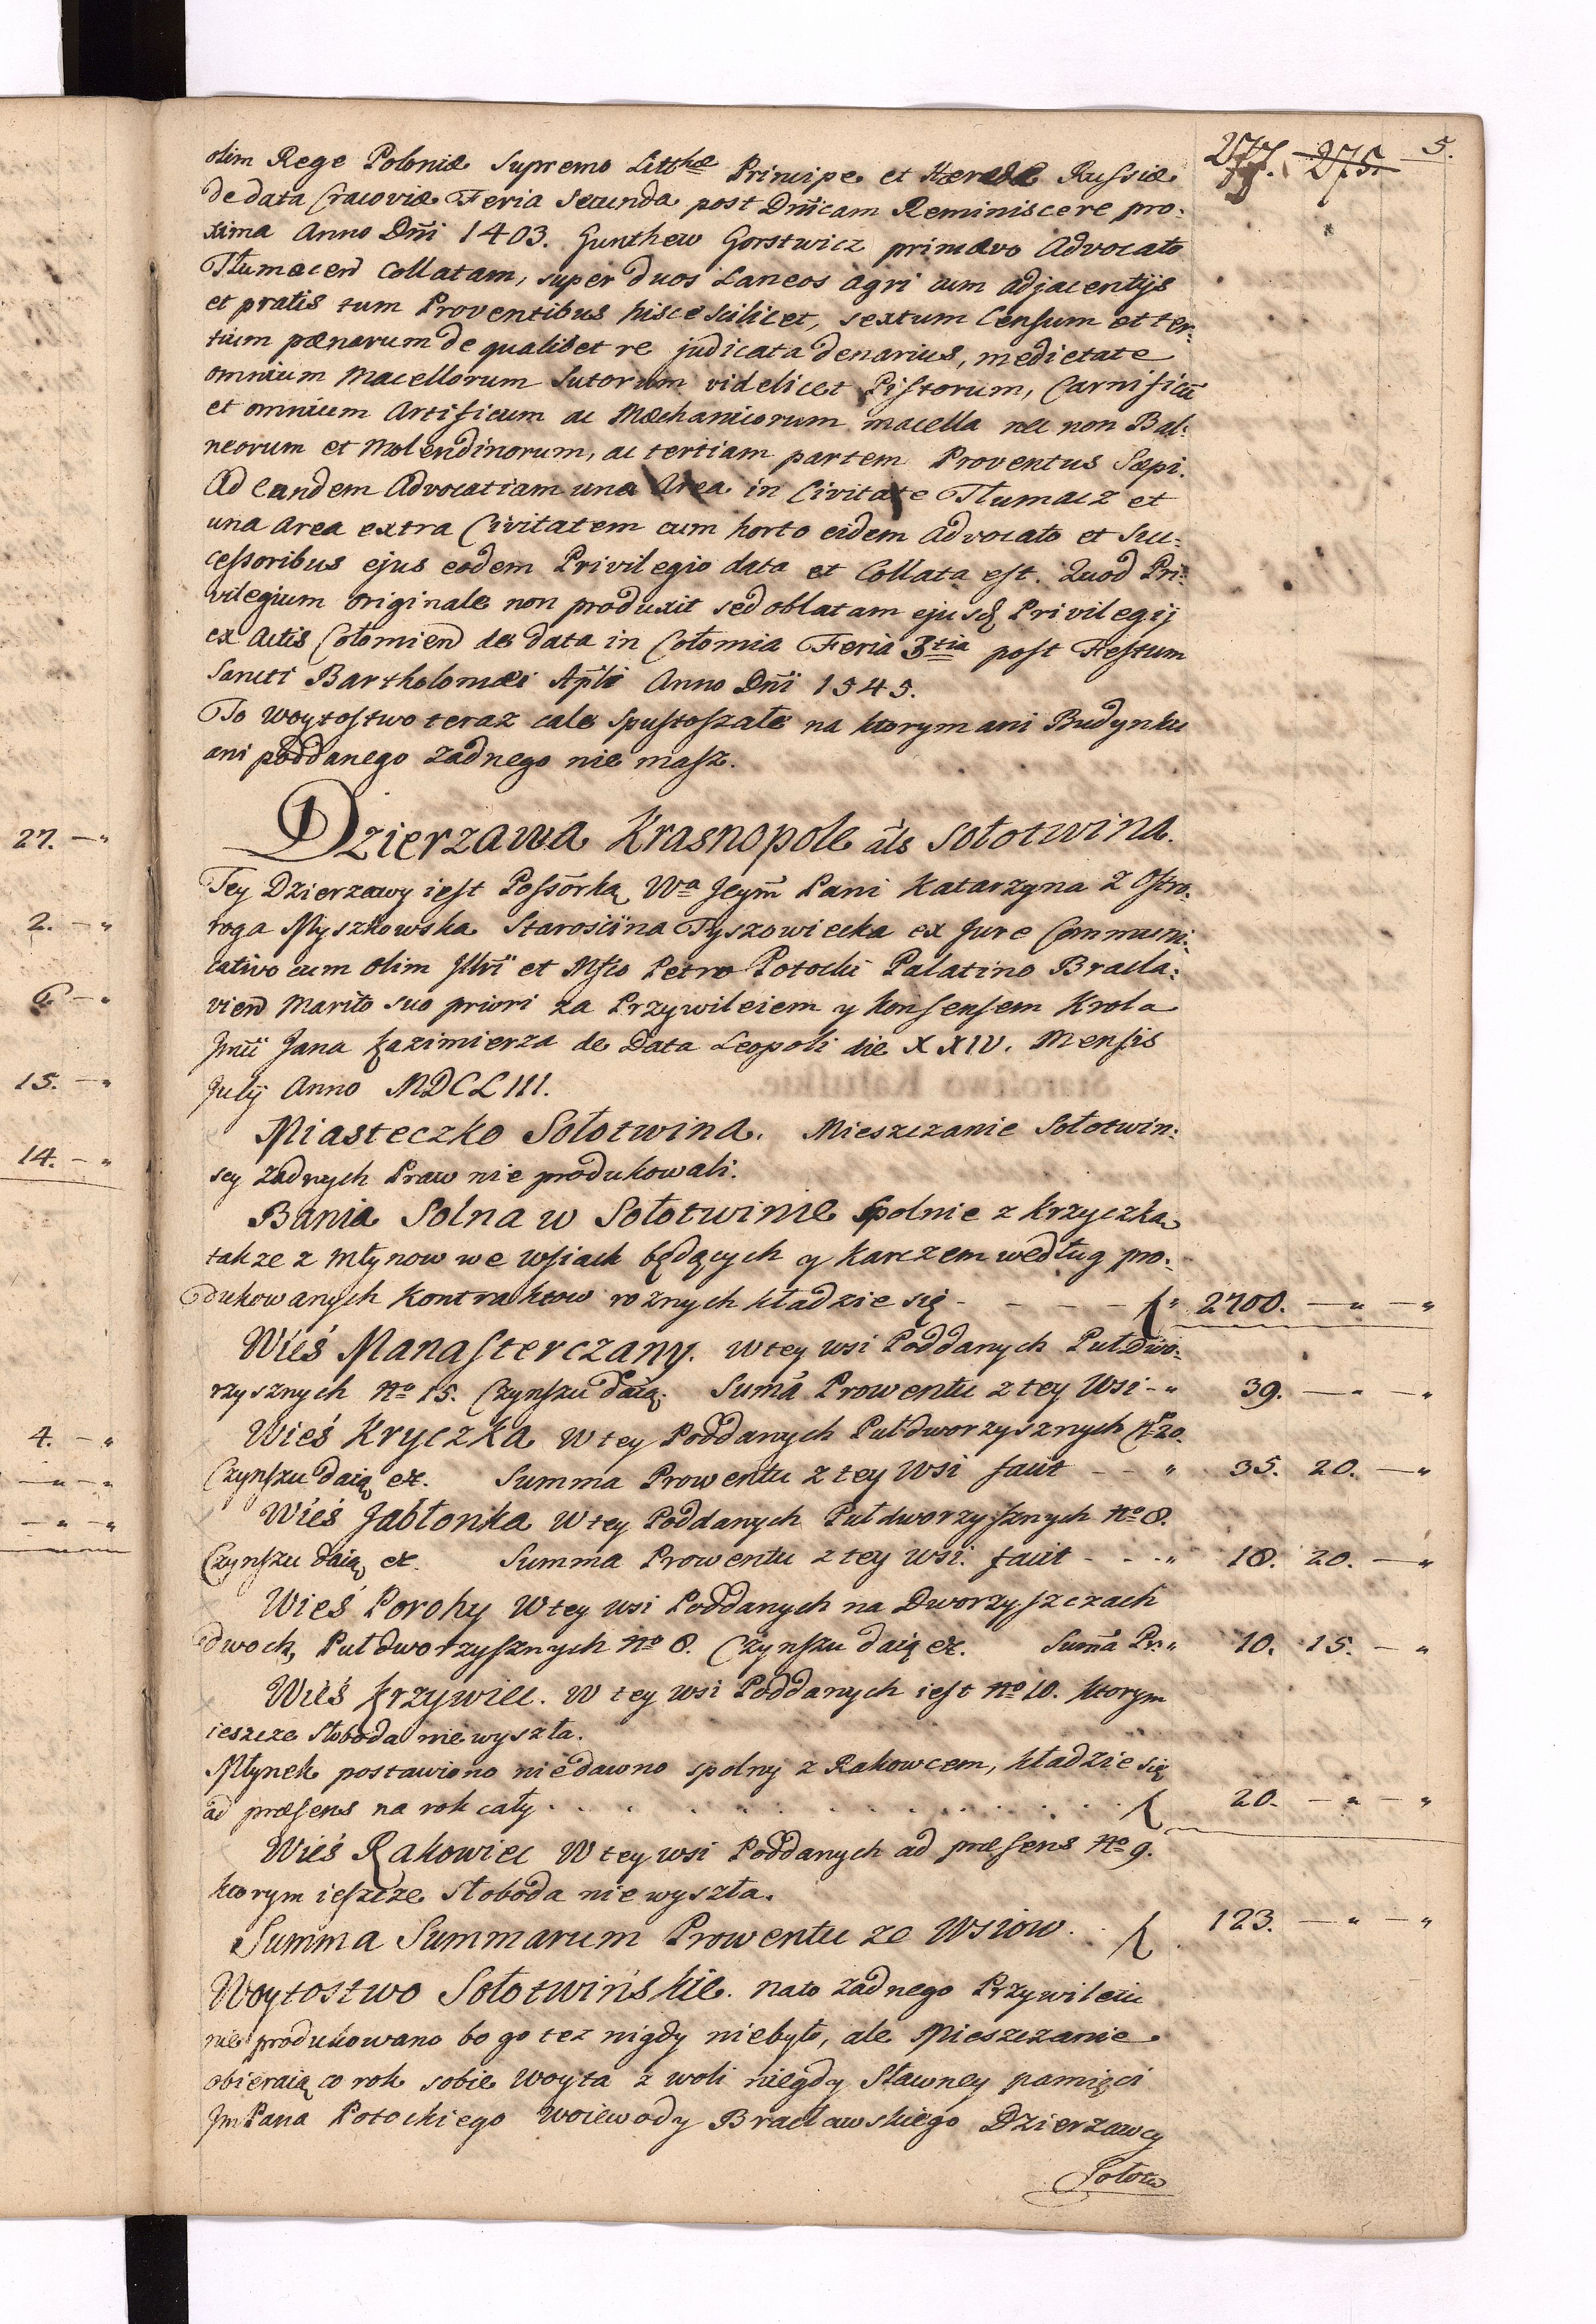 277. 275. 5.
olim Rege Poloniæ Supremo Litthæ Principe et Hærede Russiæ
de data Cracoviæ Feria Secunda post Dnīcam Reminiscere pro:
xima Anno Dn̄i 1403. Gunthew Gorstwicz primævo Advocato
Tłumacen̄ Collatam, super duos Laneos Agri cum adjacentijs
et pratis tum Proventibus hisce scilicet, sextum Censum et ter:
tium pænarum de qualibet re judicata denarius, medietate
omnium Macellorum Sutorum videlicet Pistorum, Carnificū
et omnium Artificum ac Mæchanicorum macella nec non Bal:
neorum et Molendinorum, ac tertiam partem Proventus Sæpi.
Ad eandem Advocatiam una Area in Civitate Tłumacz et
una Area extra Civitatem cum horto eidem Advocato et Suc:
cessoribus ejus eodem Privilegio data et Collata est. Quod Pri:
vilegium originale non produxit sed oblatam ejusd Privilegij
ex Actis Colomien̄ de data in Colomia Feria 3tia post Festum
Sancti Bartholomæi Apl̄i Anno Dn̄i 1545.
To Woytostwo teraz cale Spustoszałe na ktorym ani Budynku
ani poddanego zadnego nie masz.
Dzierzawa Krasnopole als Sołotwina.
27. —"
Tey Dzierzawy iest Possorką Wa Jeym Pani Katarzyna z Ostro:
2. —"
roga Myszkowska Starościna Tyszowiecka ex Jure Communi:
cativo cum olim Illn̄i et Mfco Petro Potocki Palatino Bracla:
6 —"
vien̄ Marito suo priori za Przywileiem y konsensem Krola
Jmci Jana Kazimierza de Data Leopoli die XXIV. Mensis
15. —"
July Anno MDCLIII.
Miasteczko Sołotwina. Mieszczanie Sołotwin:
14. —"
scy zadnych Praw nie produkowali.
Bania Solna w Sołotwinie spolnie z Krzyczką
takze z Młynow we wsiach będących y karczem według pro:
dukowanych Kontraktow roznych kładzie się - - - - - " 2700. —"—"
Wieś Manasterczany. w tey wsi Poddanych Pułdwo:
rzysznych No 15. Czynszu daią. Suma Prowentu z tey Wsi -" 39. —"—"
4. —"
Wieś Kryczka w tey Poddanych Pułdworzysznych No 20.
Czynszu daią etc. Summa Prowentu z tey Wsi facit - - " 35. 20. —"
—"—"
Wieś Jabłonka w tey Poddanych Pułdworzysznych No 8.
—"—"
Czynszu daią etc. Summa Prowentu z tey Wsi. facit - - -" 18. 20. —"
Wieś Porohy w tey wsi Poddanych na Dworzyszczach
dwoch, Pułdworzysznych No 8. Czynszu daią etc. Suma Pr." 10. 15. —"
Wieś Krzywiec. w tey wsi Poddanych iest No 10. ktorym
ieszcze Słoboda nie wyszła.
Młynek postawiono niedawno spolny z Rakowcem, kładzie się
ad præsens na rok cały . . . . . . . . . . . . 20. —"—"
Wieś Rakowiec w tey wsi Poddanych ad præsens No 9.
ktorym ieszcze Słoboda nie wyszła.
Summa Summarum Prowentu ze Wsiow. . 123. —"—"
Woytostwo Sołotwińskie. na to zadnego Przywileiu
nie produkowano bo go tez nigdy nie było, ale Mieszczanie
obieraią co rok sobie Woyta z woli niegdy Sławney pamięci
Jm Pana Potockiego Woiewody Bracławskiego Dzierzawcy
Sołotw